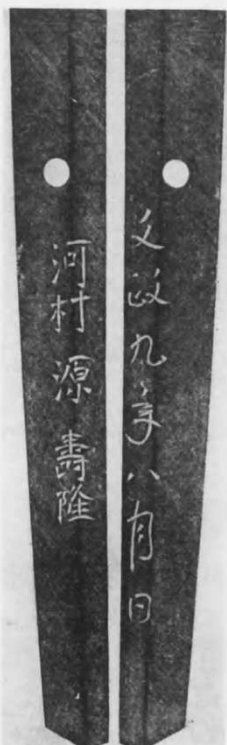 文政九年八月日
河村源壽隆